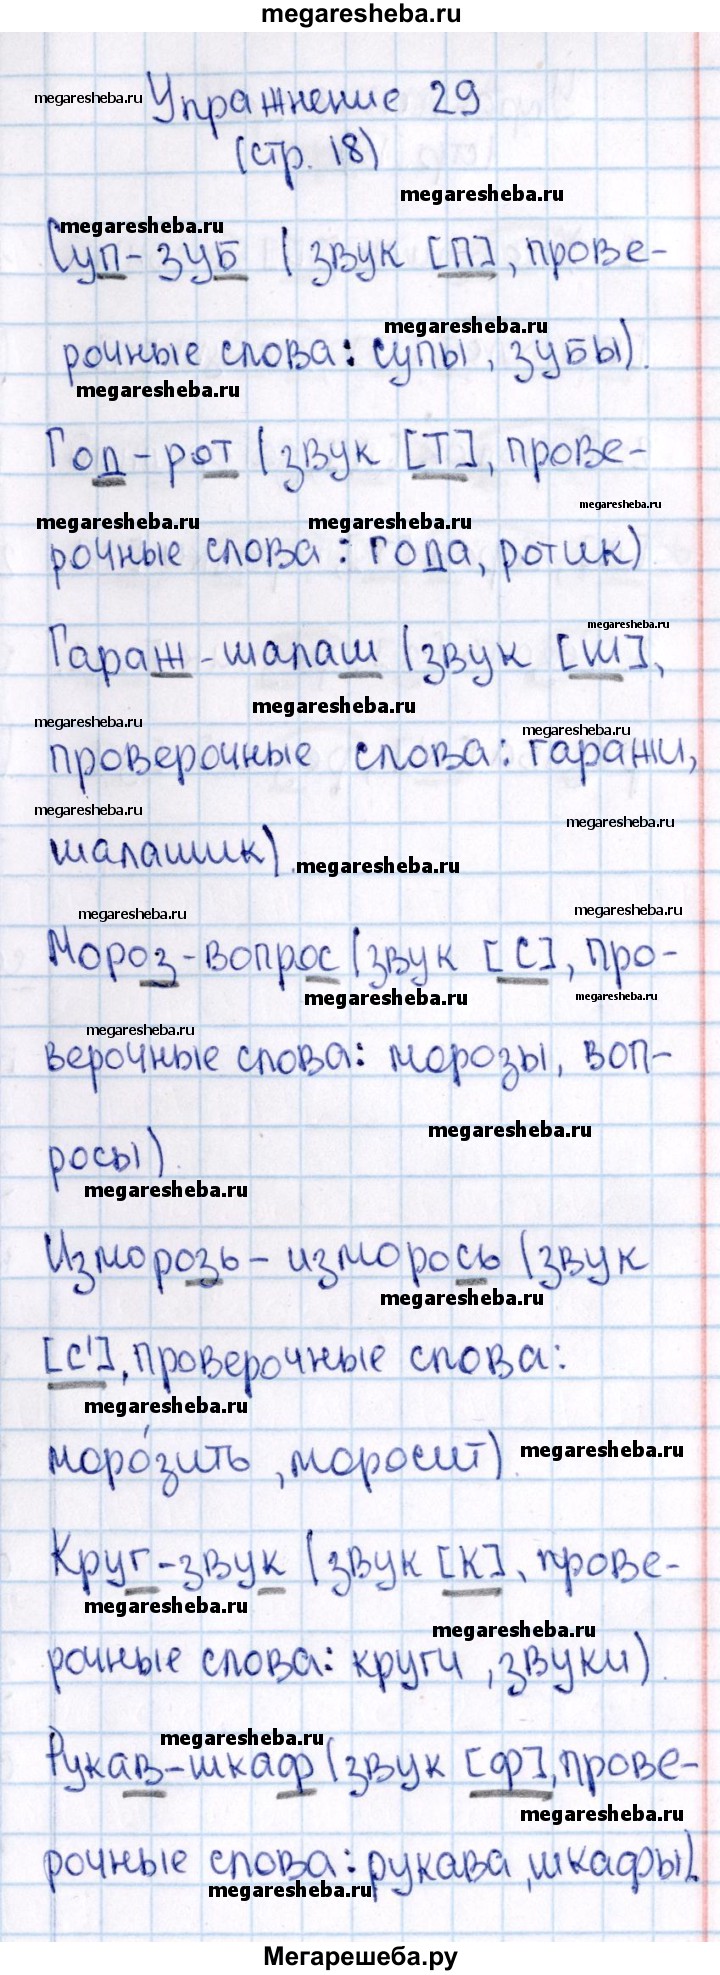 megaresheba.ru
Упражнение 29
megaresheba.ru
(стр. 18)
megaresheba.ru
megaresheba.ru
Суп - зуб (звук [П], прове-
megaresheba.ru
рочные слова: супы, зубы).
megaresheba.ru
Год - рот (звук [Т], прове-
megaresheba.ru
megaresheba.ru megaresheba.ru
рочные слова: года, ротик)
megaresheba.ru
Гараж - шалаш (звук [Ш],
megaresheba.ru
megaresheba.ru
megaresheba.ru
проверочные слова: гаражи,
megaresheba.ru
megaresheba.ru
шалашик).
megaresheba.ru
megaresheba.ru
megaresheba.ru
Мороз - вопрос (звук [С], про-
megaresheba.ru
megaresheba.ru
megaresheba.ru
верочные слова: морозы, воп-
megaresheba.ru
росы).
megaresheba.ru
Изморозь - изморось (звук
megaresheba.ru
[с'], проверочные слова:
megaresheba.ru
моро́зить, моросит)
megaresheba.ru
Круг - звук (звук [К], прове-
megaresheba.ru
megaresheba.ru
рочные слова: круги, звуки).
megaresheba.ru
Рукав - шкаф (звук [ф], прове-
megaresheba.ru
рочные слова: рукава, шкафы).
megaresheba.ru
Мегарешеба.ру